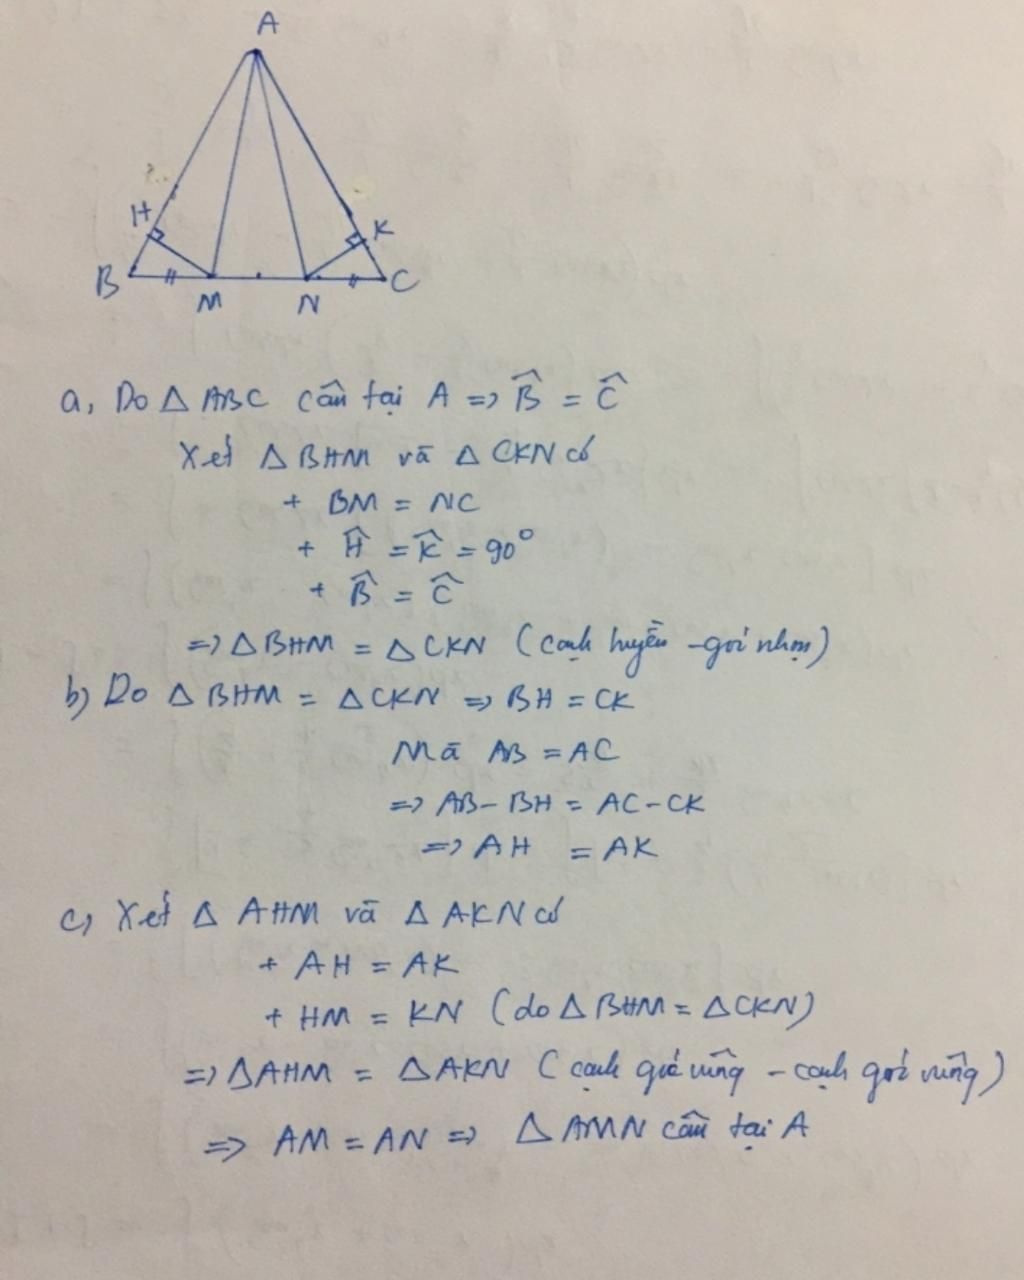 A
H
K
B
M
N
C
a, Do △ ABC cân tại A => B̂ = Ĉ
Xét △ BHM và △ CKN có
+ BM = NC
+ Ĥ = K̂ = 90°
+ B̂ = Ĉ
=> △ BHM = △ CKN (cạnh huyền - góc nhọn)
b) Do △ BHM = △ CKN => BH = CK
Mà AB = AC
=> AB - BH = AC - CK
=> AH = AK
c, Xét △ AHM và △ AKN có
+ AH = AK
+ HM = KN (do △ BHM = △ CKN)
=> △ AHM = △ AKN (cạnh góc vuông - cạnh góc vuông)
=> AM = AN => △ AMN cân tại A